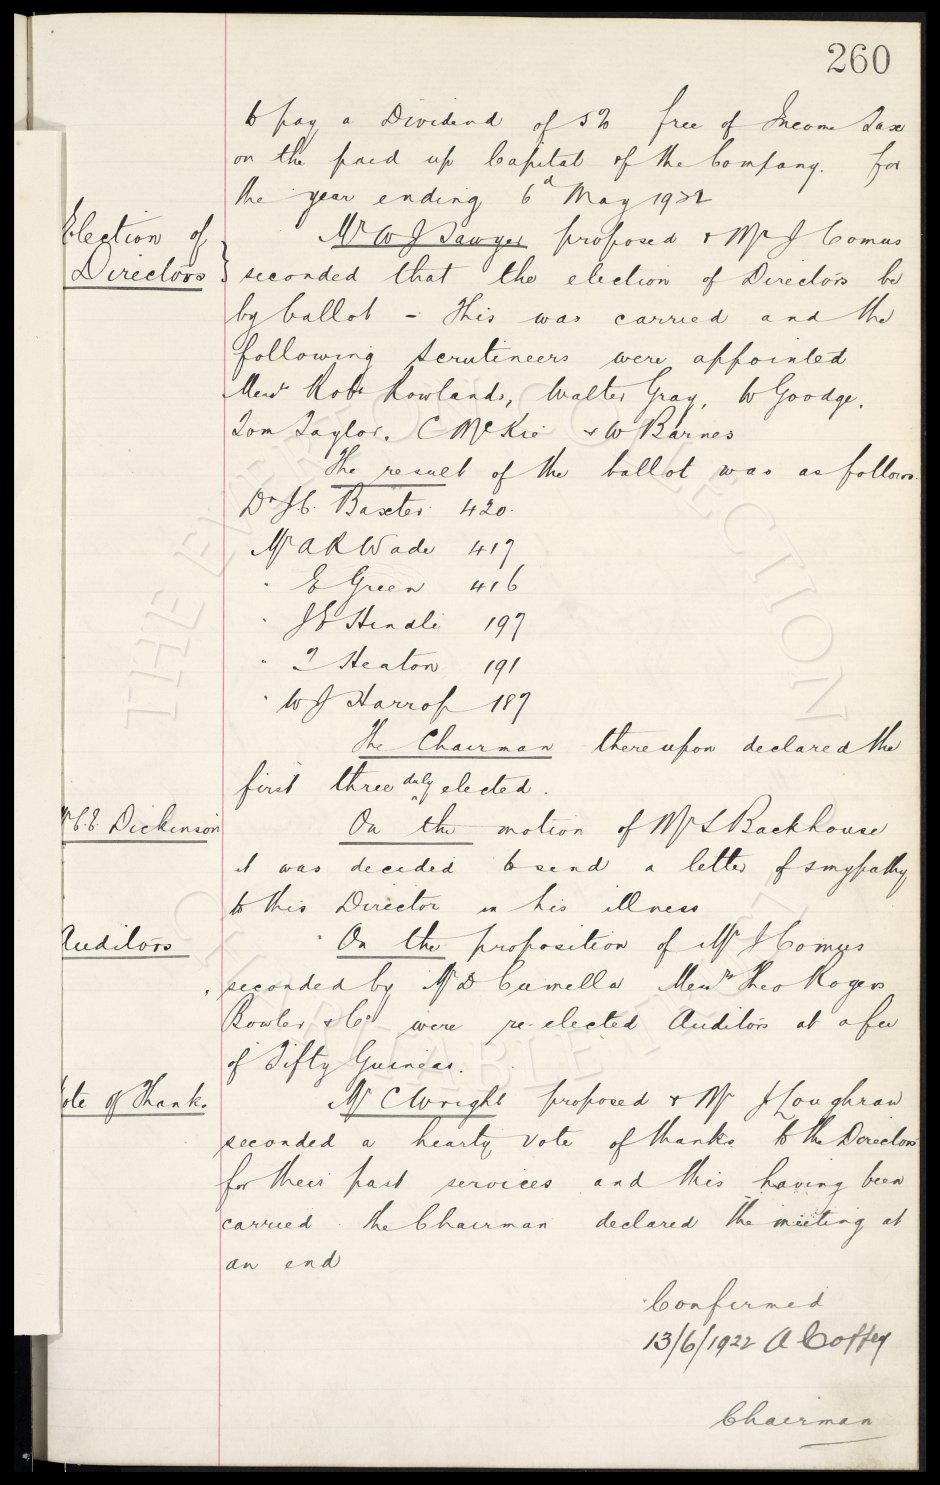 260
to pay a Dividend of 5% free of Income Tax
on the paid up Capital of the Company. for
the year ending 6d May 1922
Election of
Directors
Mr W J Sawyer proposed & Mr J Comus
seconded that the election of Directors be
by ballot - This was carried and the
following Scrutineers were appointed
Messrs Robt Rowlands, Walter Gray, W Goodge,
Tom Taylor, C McKie & W Barnes
The result of the ballot was as follows.
Dr J C. Baxter 420.
Mr A R Wade 417
" E Green 416
" J E Hindle 197
" T Heaton 191
" W J Harrop 187
The Chairman thereupon declared the
first three duly elected.
Mr C.E. Dickinson
On the motion of Mr L Backhouse
it was decided to send a letter of smypathy
to this Director in his illness
Auditors
On the proposition of Mr J Comus
seconded by Mr D Cumella Messrs Theo Rogers
Bowler & Co were re-elected Auditors at a fee
of Fifty Guineas.
Vote of Thanks
Mr C Wright proposed & Mr J Loughran
seconded a hearty vote of thanks to the Directors
for their past services and this having been
carried the Chairman declared the meeting at
an end
Confirmed
13/6/1922 A Coffey
Chairman
THE EVERTON COLLECTION
CHARITABLE TRUST